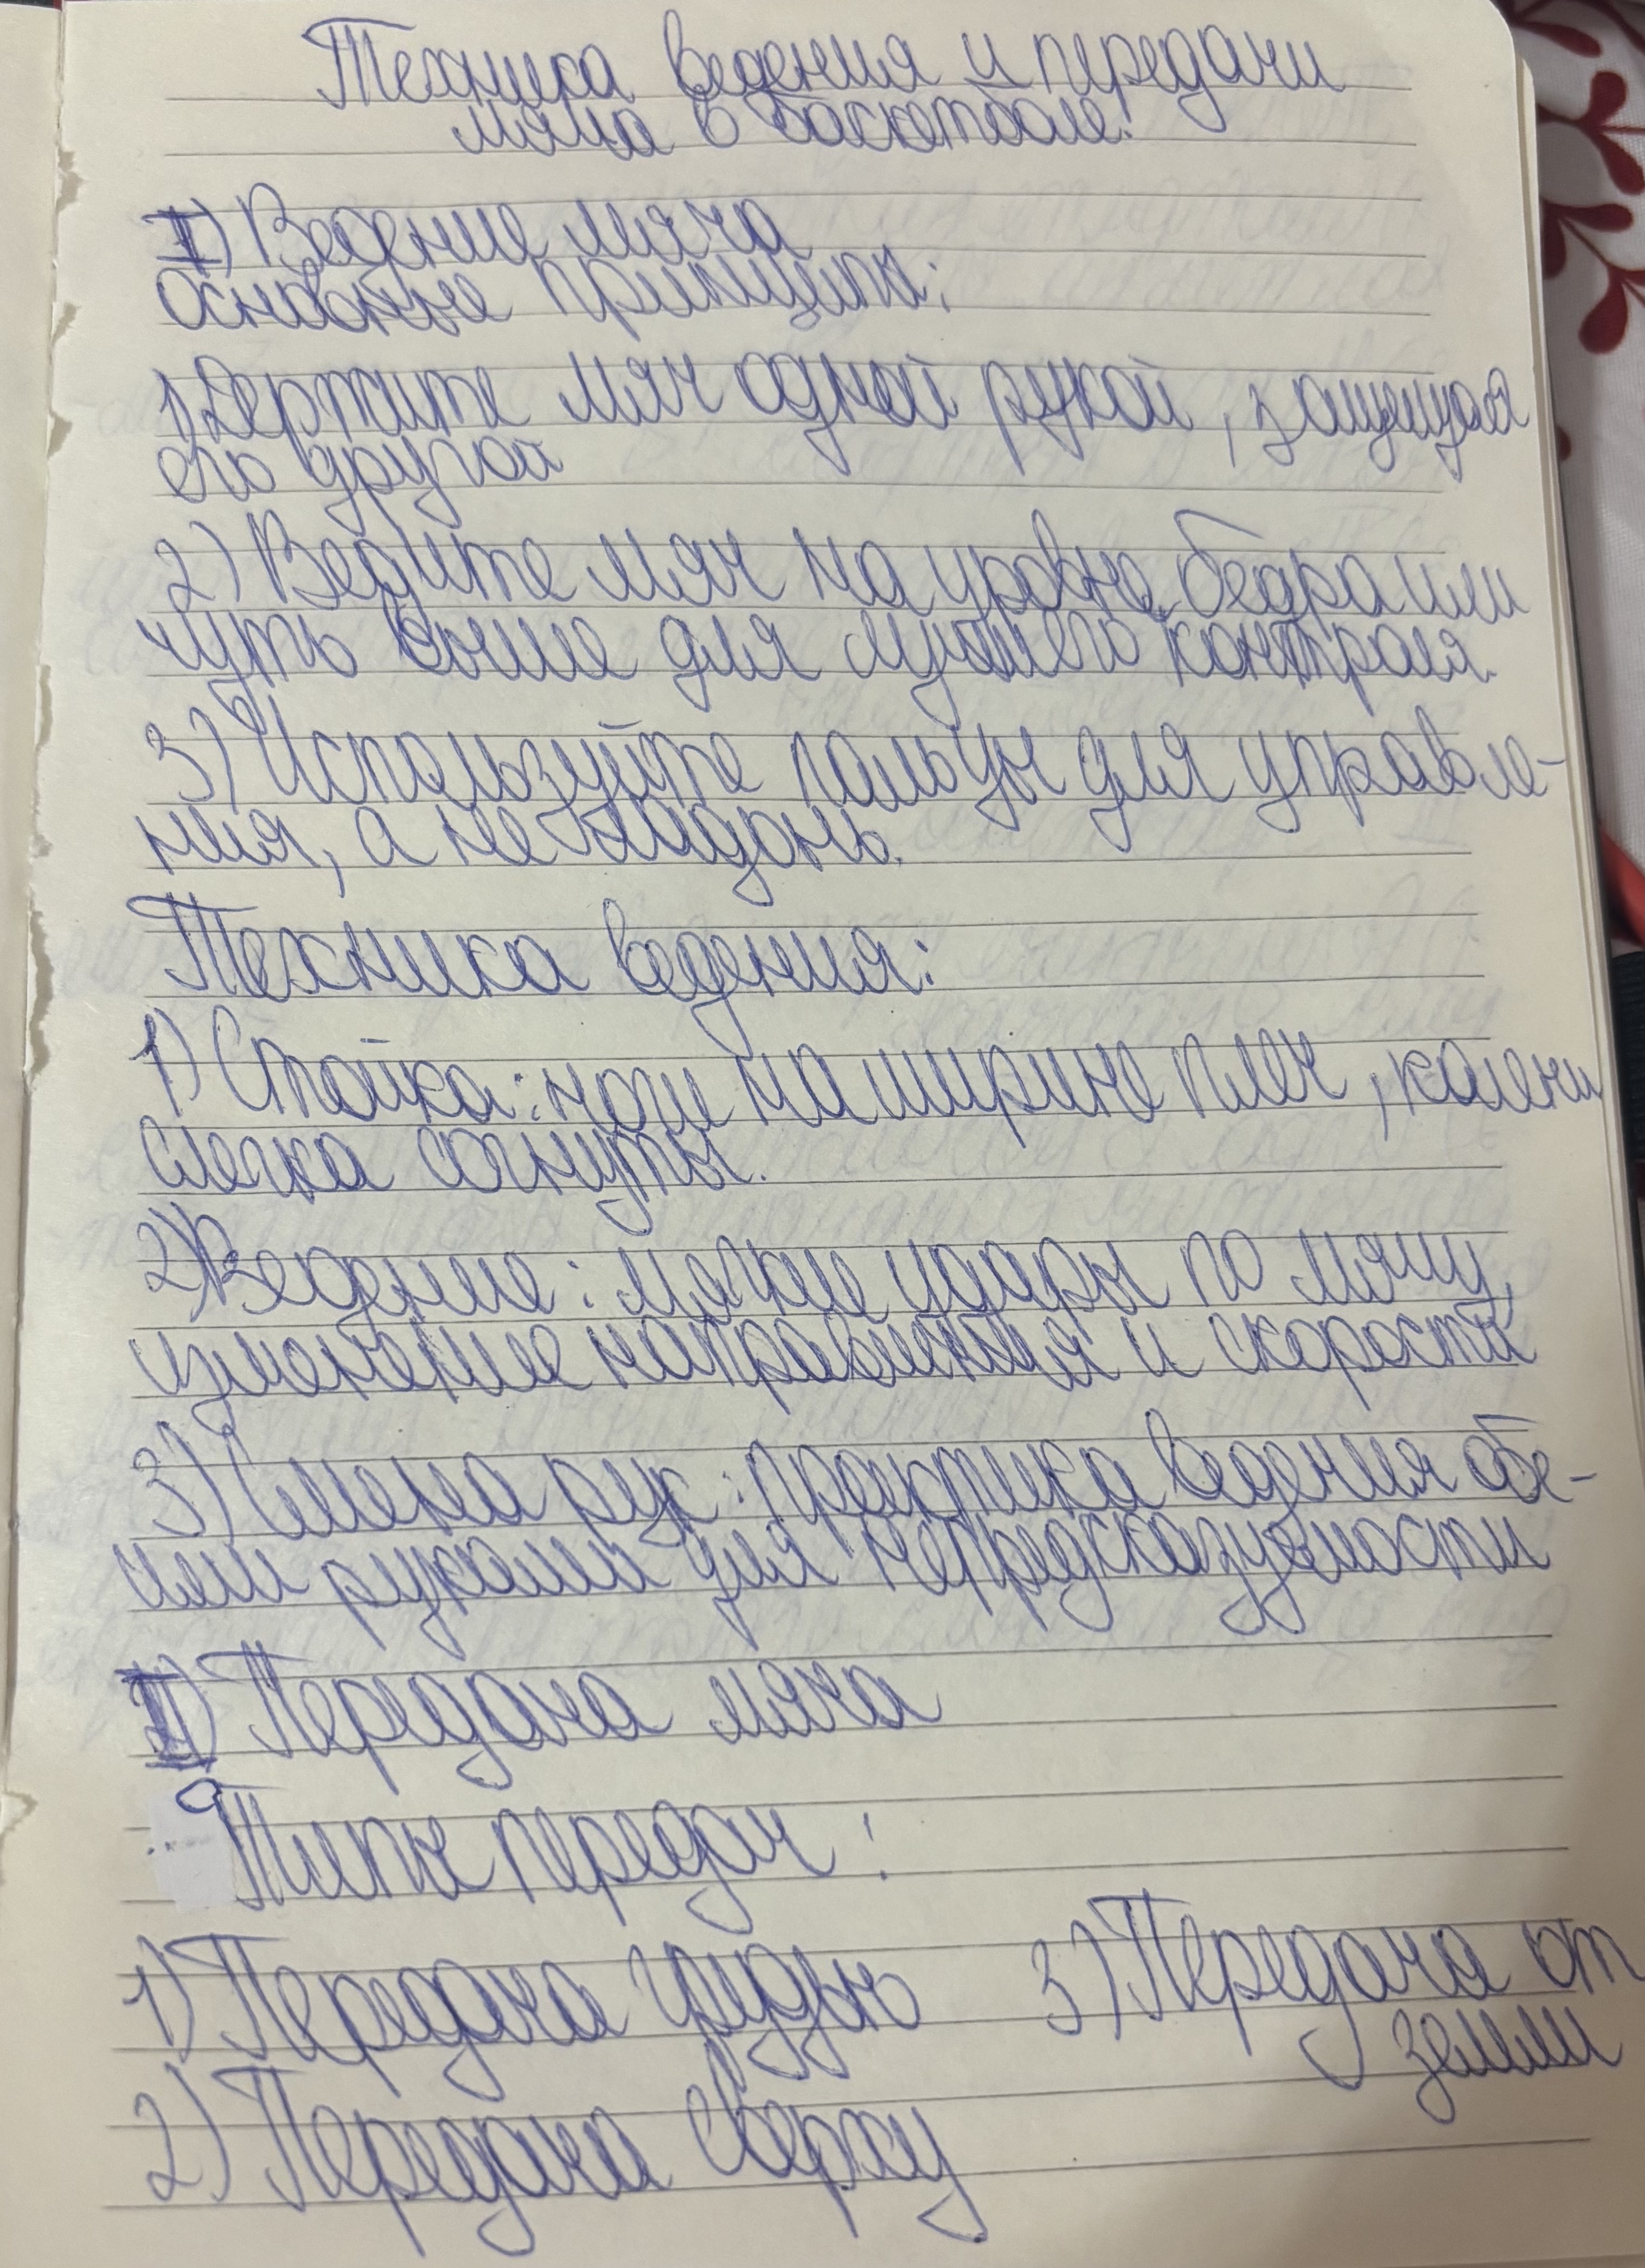 Техника ведения и передачи
мяча в баскетболе.
I) Ведение мяча
Основные принципы:
1) Держите мяч одной рукой, защищая
его другой
2) Ведите мяч на уровне бедра или
чуть выше для лучшего контроля.
3) Используйте пальцы для управле-
ния, а не ладонь.
Техника ведения:
1) Стойка: ноги на ширине плеч, колени
слегка согнуты.
2) Ведение: мягкие удары по мячу,
изменение направления и скорости
3) Смена рук: практика ведения обе-
ими руками для непредсказуемости
II) Передача мяча
Типы передач:
1) Передача грудью
3) Передача от
земли
2) Передача сверху